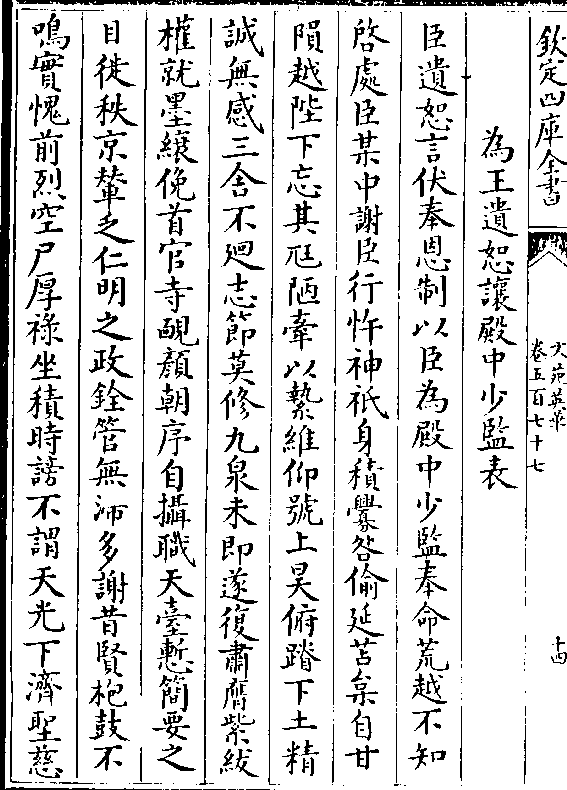 欽定四庫全書
文苑英華
卷五百七十七
十四
為王遺恕讓殿中少監表
臣遺恕言伏奉恩制以臣為殿中少監奉命荒越不知
啓處臣某中謝臣行忤神祇身積釁咎偷延苫枲自甘
隕越陛下忘其尫陋牽以縶維仰號上昊俯蹐下土精
誠無感三舍不廻志節莫修九泉未即遂復肅膺紫紱
權就墨縗俛首官寺靦顔朝序自攝職天臺慙簡要之
目徙秩京輦乏仁明之政銓管無沛多謝昔賢枹鼓不
鳴實愧前烈空尸厚祿坐積時謗不謂天光下濟聖慈